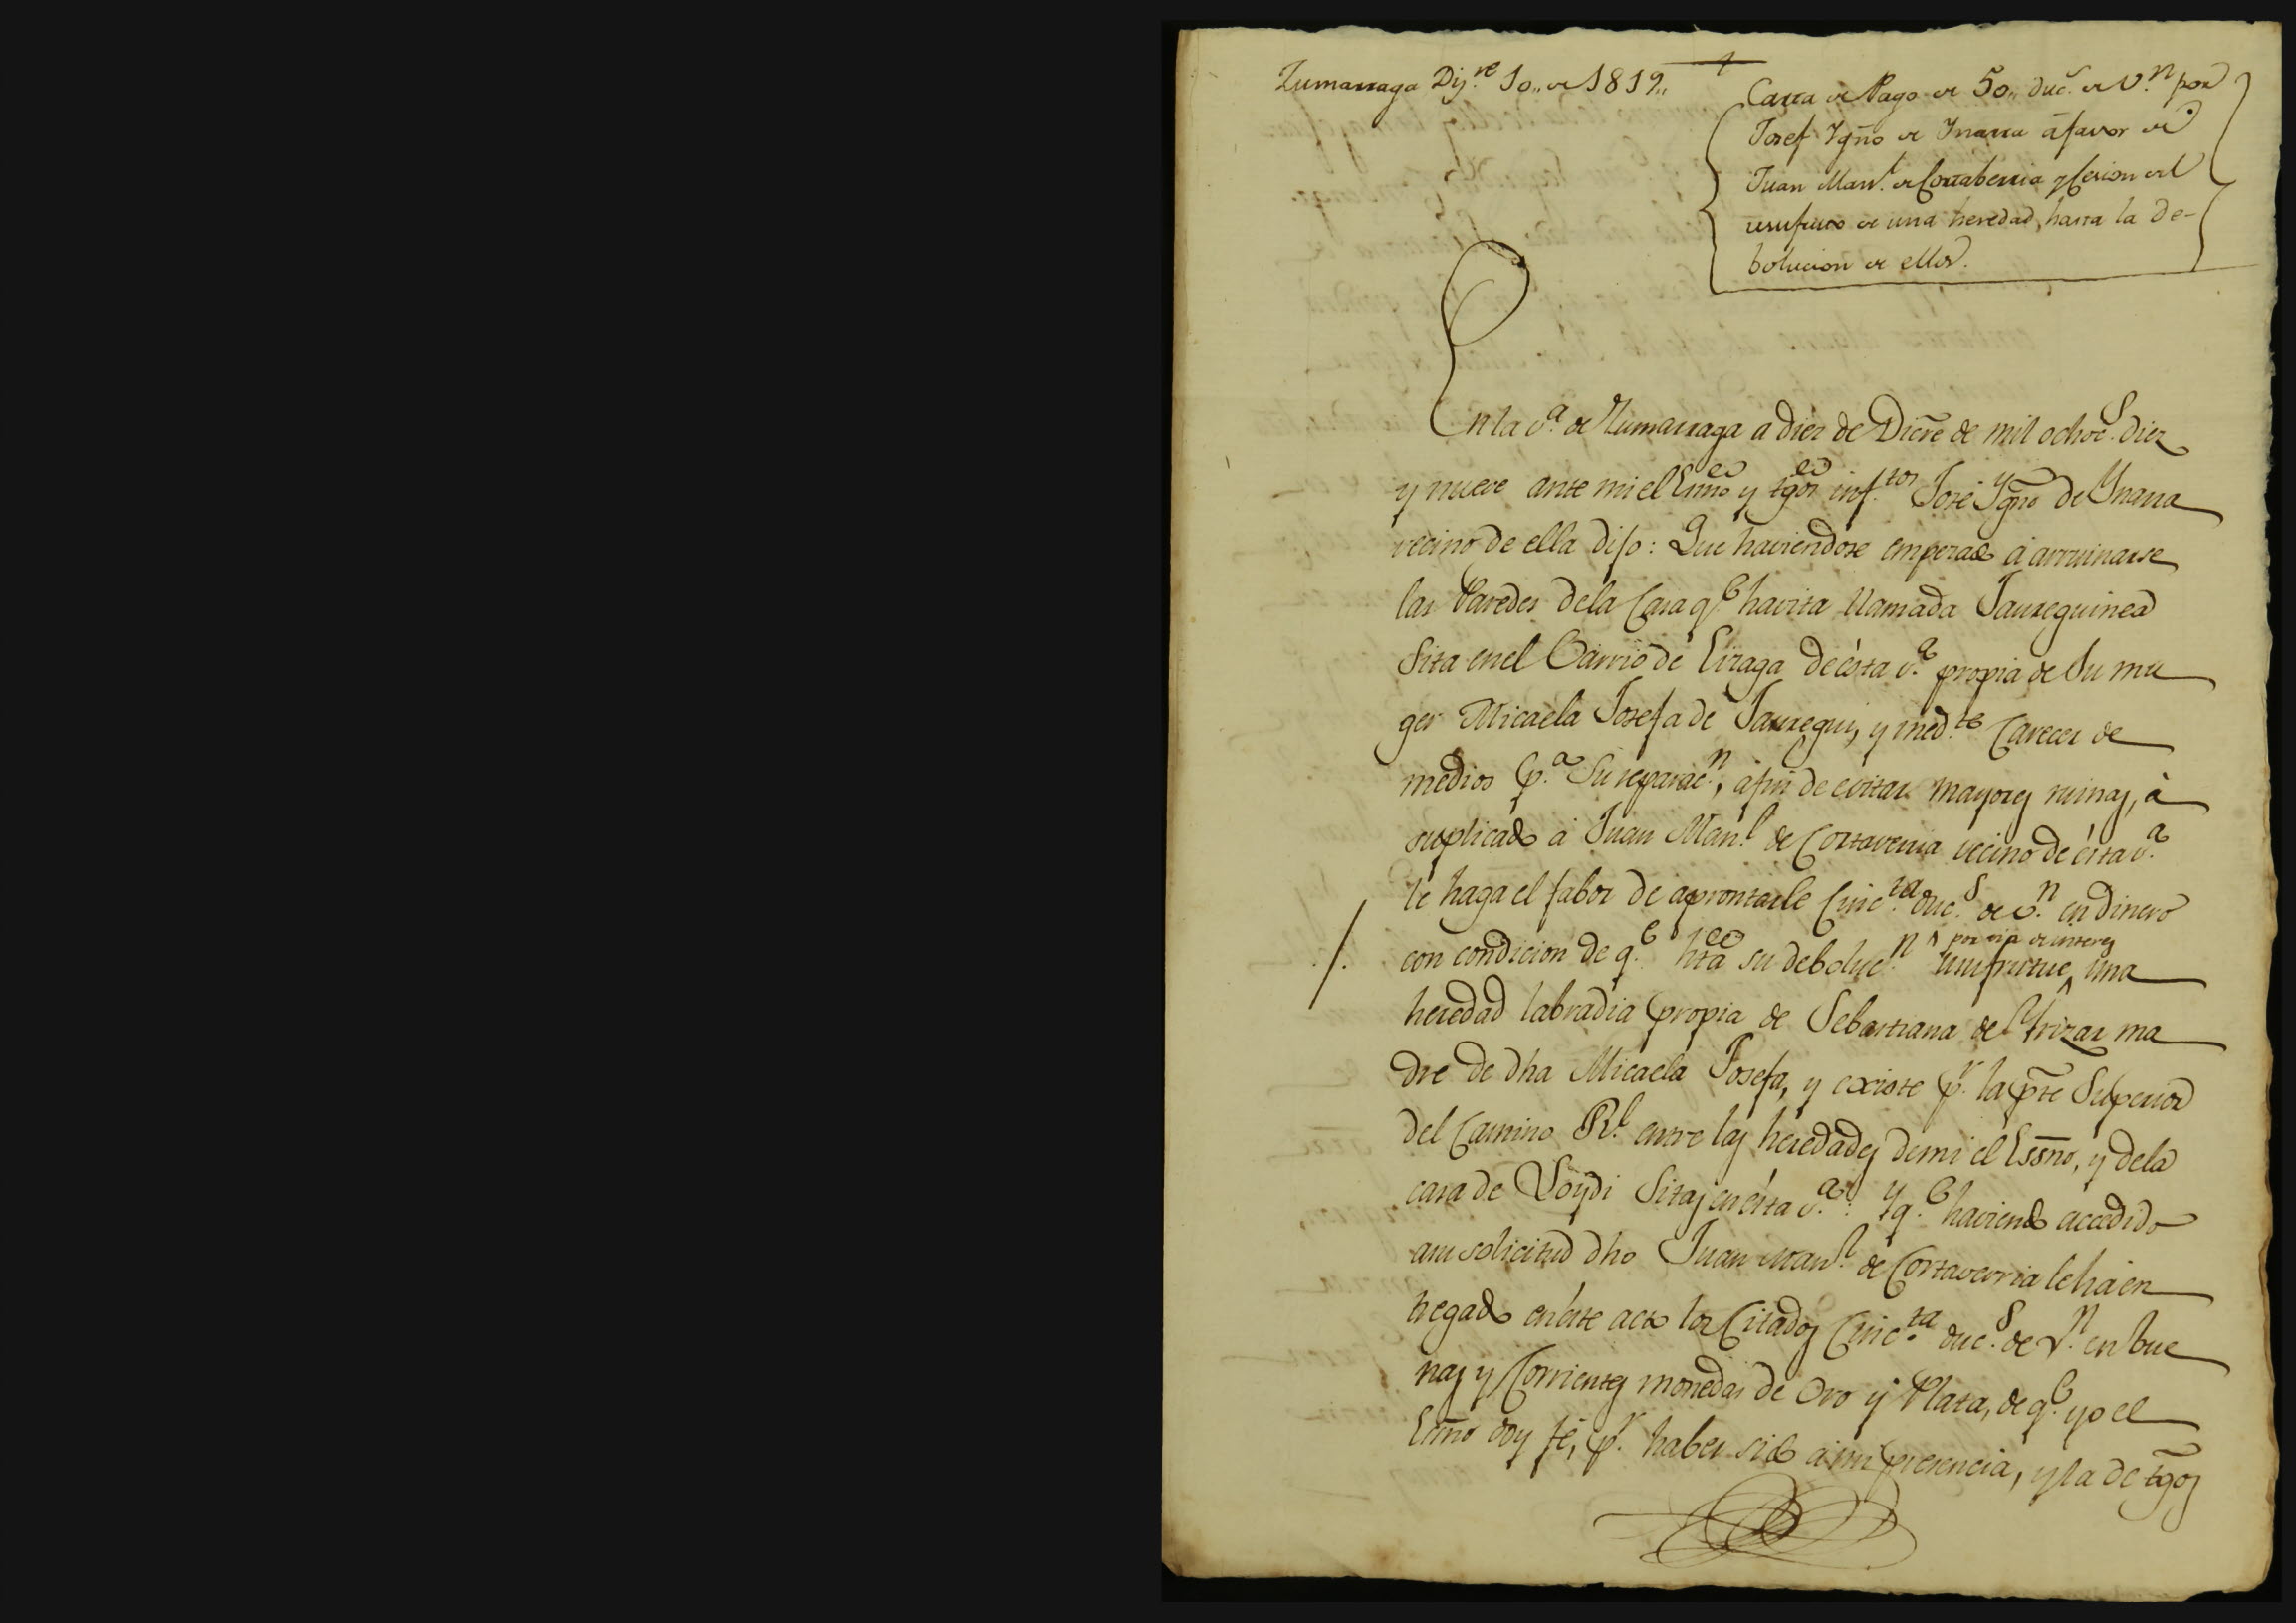 Zumarraga Dij.re 10,, de 1819,,
Carta de Pago de 50,, duc.s de V.n por
Josef Ygño de Ynarra á favor de
Juan Man.l de Cortaberria y Cesion del
usufruto de una heredad, hasta la de-
bolucion de ellos.
En la v.a de Zumarraga a diez de Dicre de mil ochoc.s diez
y nueve ante mi el Essno y tgos inf.tos José Ygno de Ynarra
vecino de ella dijo: Que haviendose empezado á arruinarse
las Paredes dela Casa q.e havita llamada Jaureguinea
Sita enel Barrio de Eizaga de ésta v.a propia de Su mu
ger Micaela Josefa de Jauregui, y med.te Carecer de
medios p.a Su reparac.n, afin de evitar mayores ruinas, à
suplicado á Juan Man.l de Cortaverria vecino de ésta v.a
le haga el fabor de aprontarle Cinc.ta duc.s de v.n en dinero
por via de interes
con condicion de q.e hta su deboluc.n usufrutue una
heredad labradia propia de Sebastiana de Yrizar ma
dre de dha Micaela Josefa, y existe p.r la pte Superior
del Camino R.l entre las heredades demi el Essno, y dela
casa de Loydi Sitas en ésta v.a: Y q.e haviendo accedido
asu solicitud dho Juan Man.l de Cortaverria le há en
tregado en éste acto los Citados Cinc.ta duc.s de V.n en bue
nas y Corrientes monedas de Oro y Plata, de q.e yo el
Essno doy fé, p.r haber sido a mi presencia, y la de tgos